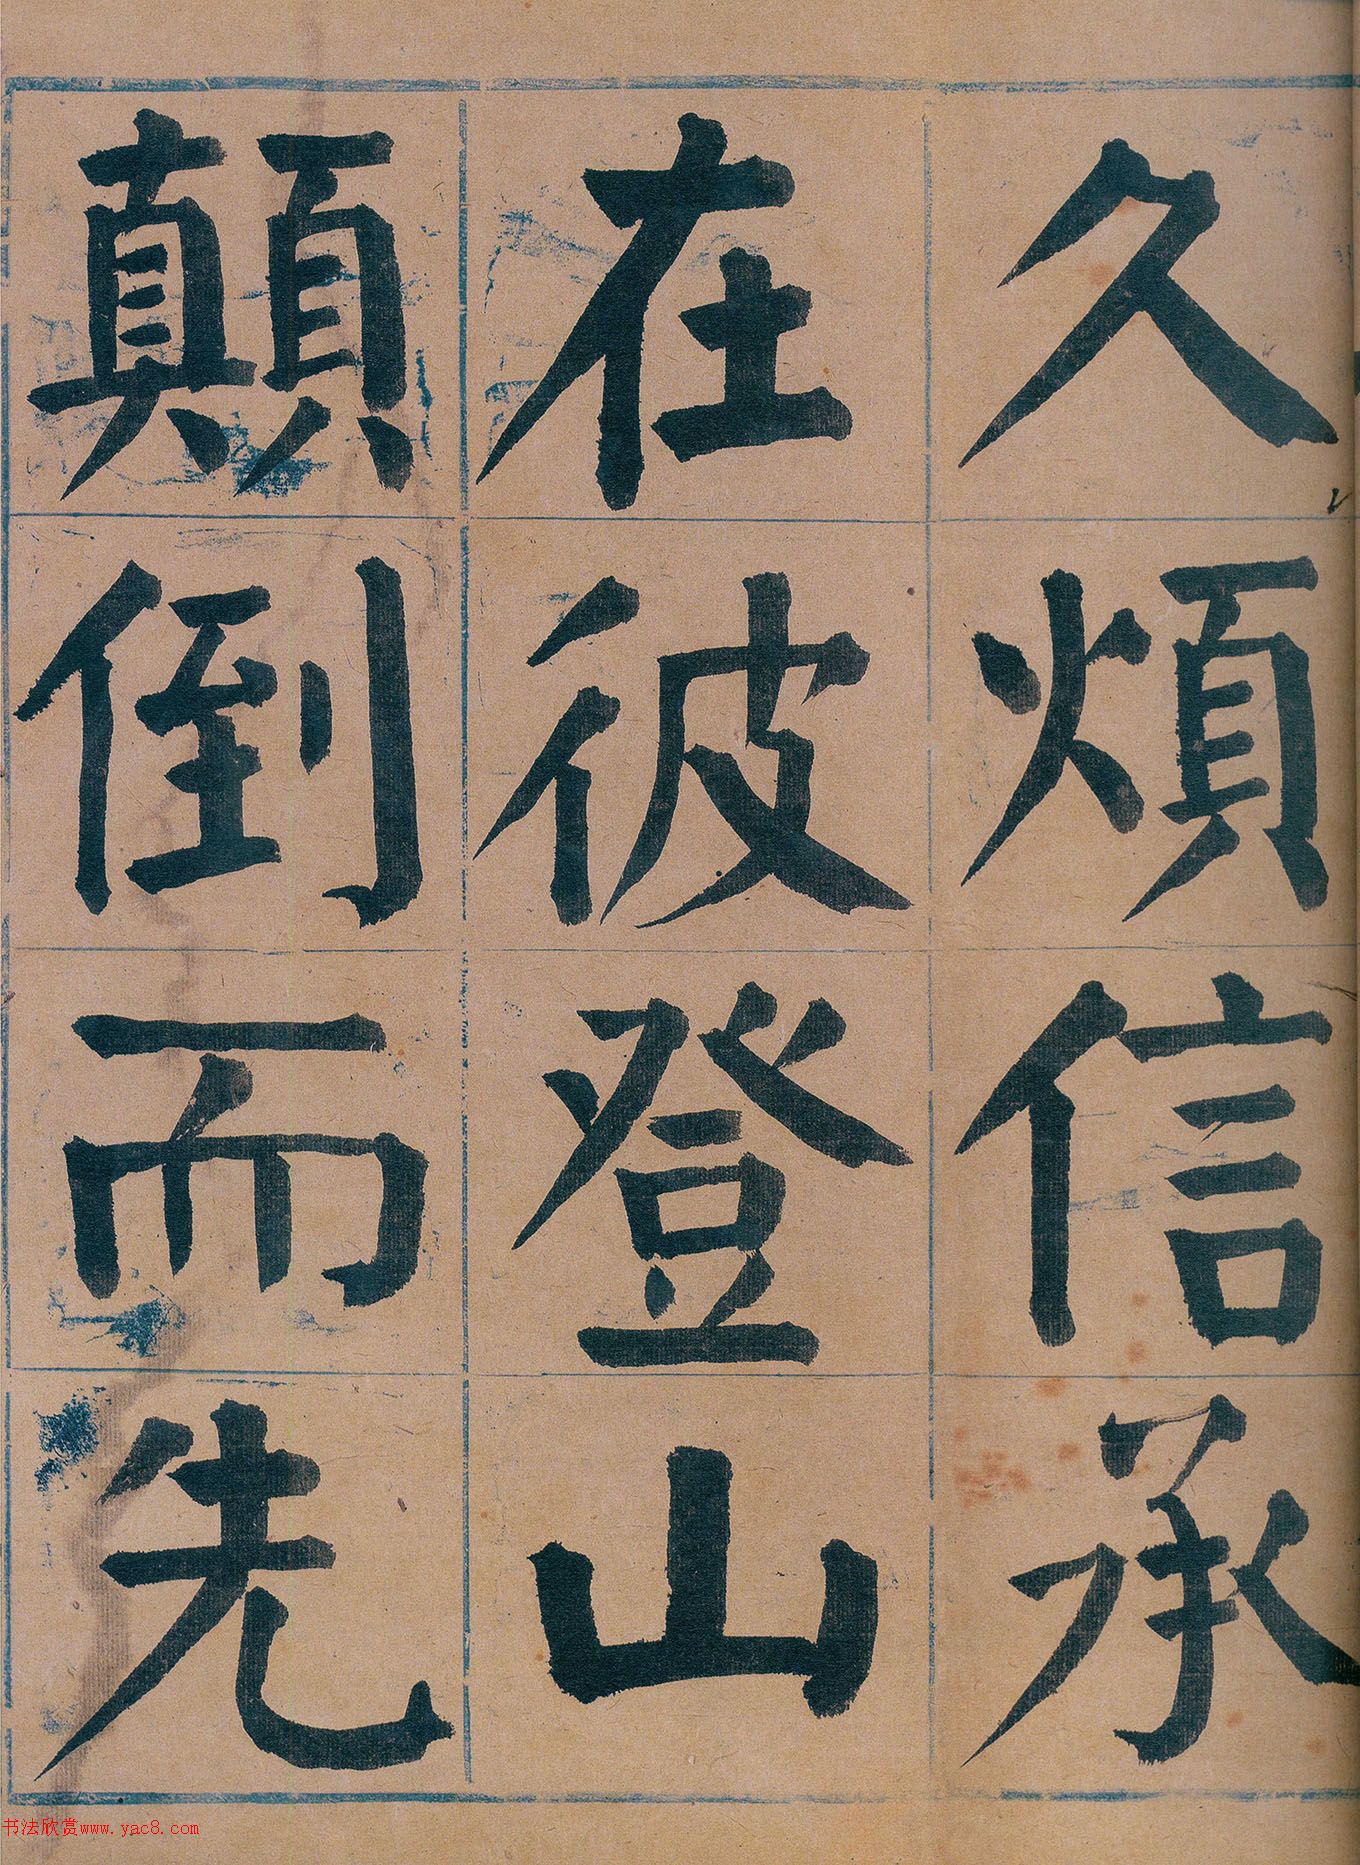 久煩信承
在彼登山
顛倒而先
书法欣赏www.yac8.com